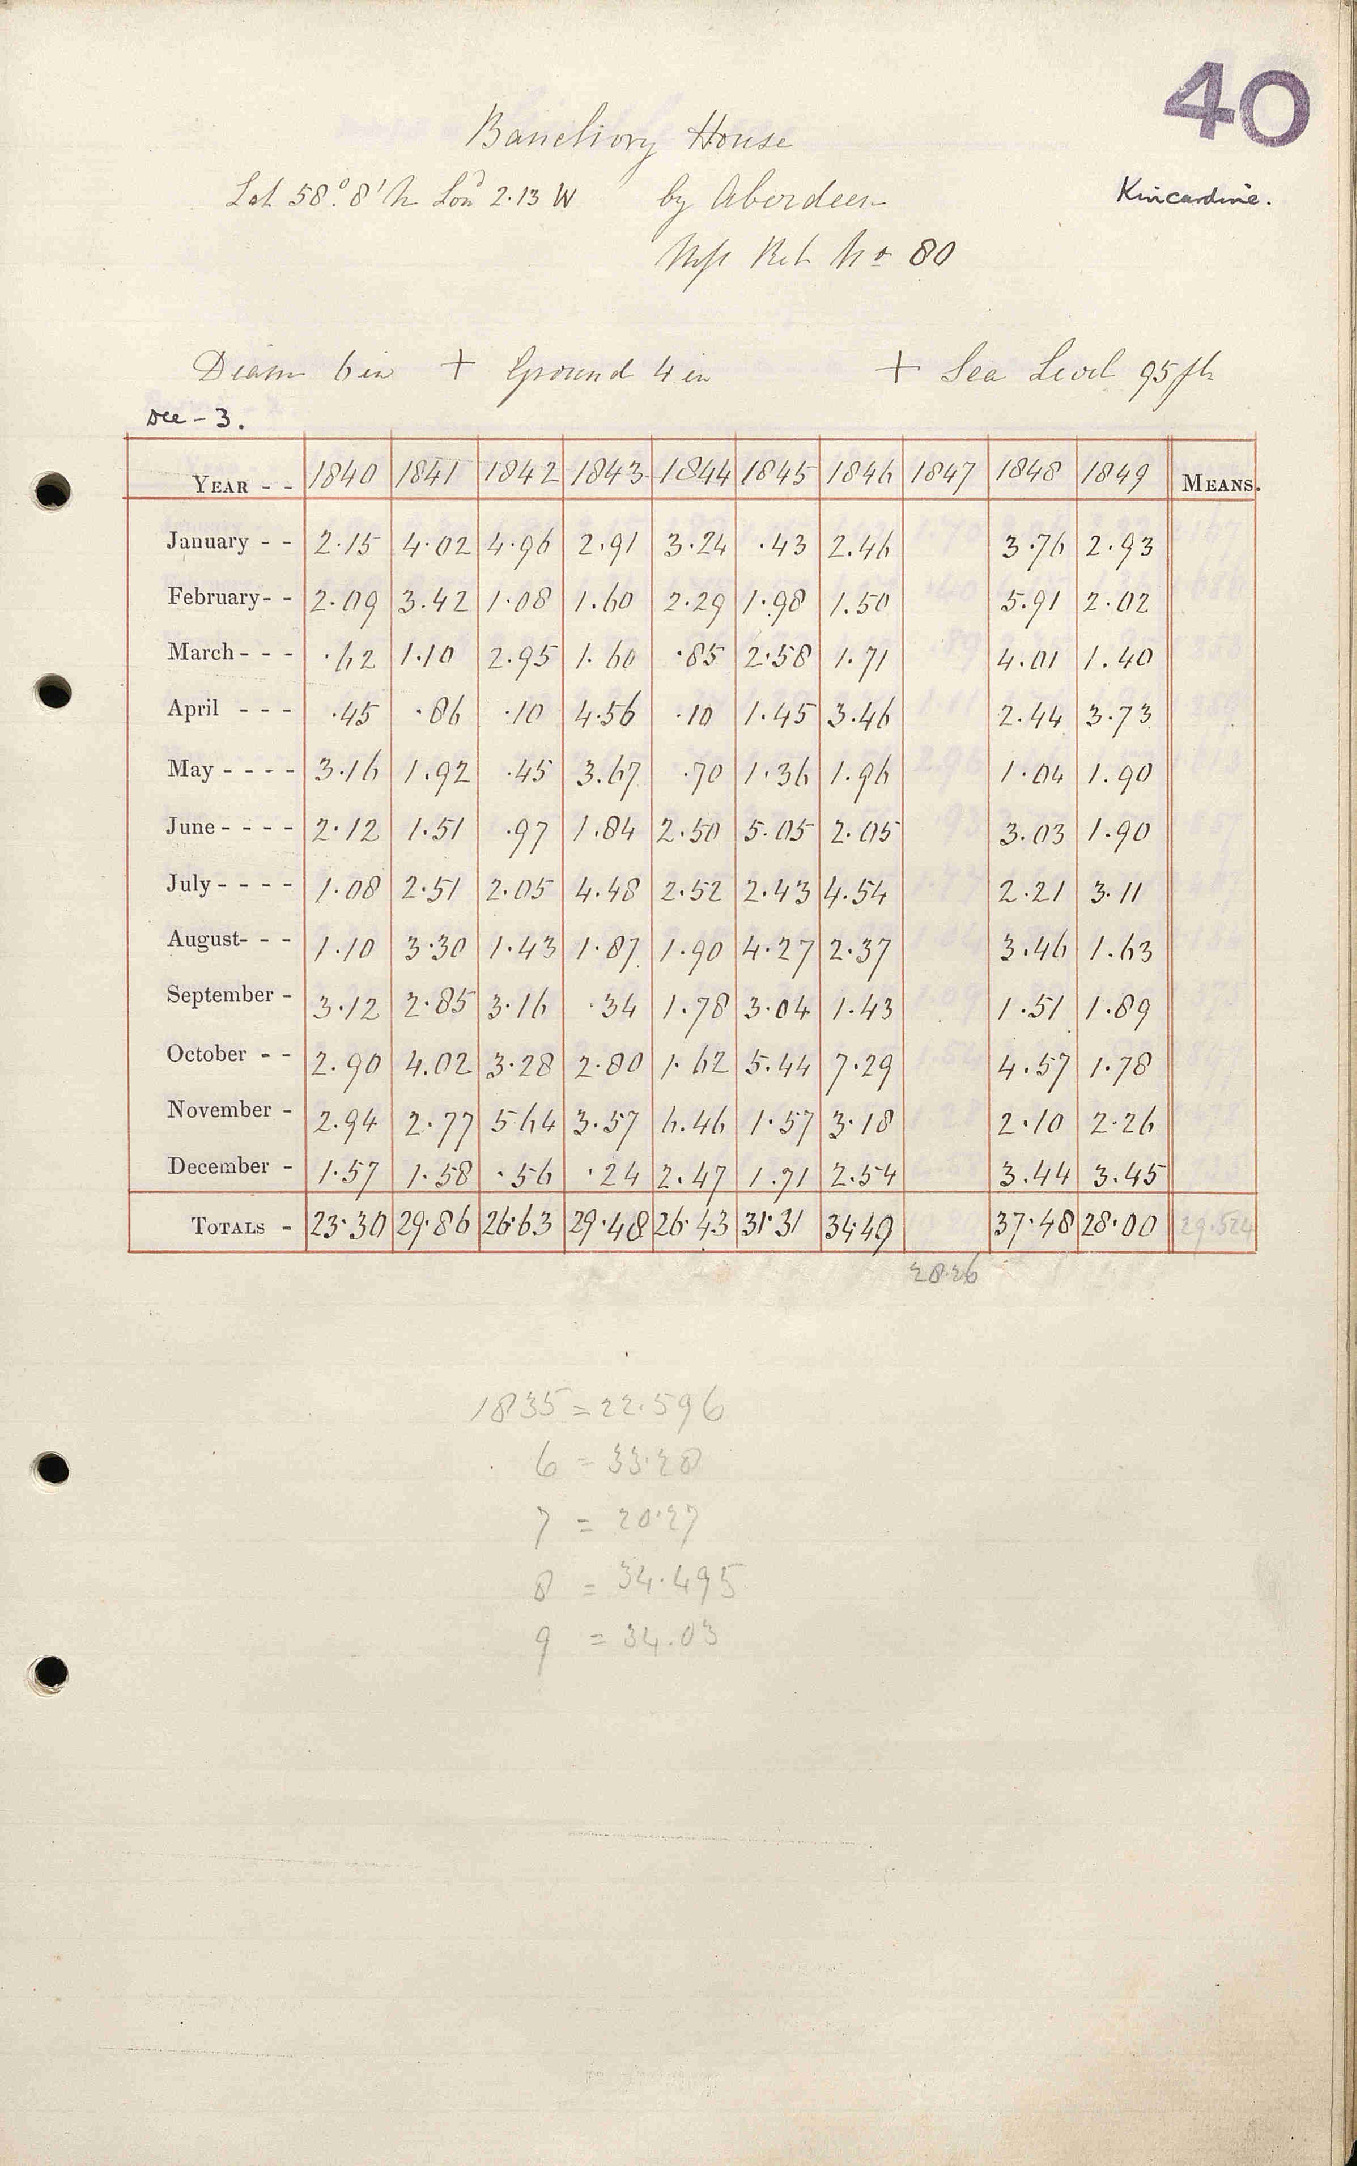 40
Banchory House
Kincardine.
Lat 58° 8' N Lond 2.13 W by Aberdeen
Mss Ret No 80
Diam 6 in + Ground 4 in + Sea Level 95 ft
Dee - 3.
YEAR - - 1840 1841 1842 1843 1844 1845 1846 1847 1848 1849 MEANS.
January - - 2.15 4.02 4.96 2.91 3.24 .43 2.46 3.76 2.93
February - - 2.09 3.42 1.08 1.60 2.29 1.98 1.50 5.91 2.02
March - - - .62 1.10 2.95 1.60 .85 2.58 1.71 4.01 1.40
April - - - .45 .86 .10 4.56 .10 1.45 3.46 2.44 3.73
May - - - - 3.16 1.92 .45 3.67 .70 1.36 1.96 1.04 1.90
June - - - - 2.12 1.51 .97 1.84 2.50 5.05 2.05 3.03 1.90
July - - - - 1.08 2.51 2.05 4.48 2.52 2.43 4.54 2.21 3.11
August - - - 1.10 3.30 1.43 1.87 1.90 4.27 2.37 3.46 1.63
September - 3.12 2.85 3.16 .34 1.78 3.04 1.43 1.51 1.89
October - - 2.90 4.02 3.28 2.80 1.62 5.44 7.29 4.57 1.78
November - 2.94 2.77 5 64 3.57 6.46 1.57 3.18 2.10 2.26
December - 1.57 1.58 .56 .24 2.47 1.71 2.54 3.44 3.45
TOTALS - 23.30 29.86 26.63 29.48 26.43 31.31 34.49 37.48 28.00 29.524
28.26
1835 = 22.596
6 = 33.28
7 = 20.27
8 = 34.495
9 = 34.03